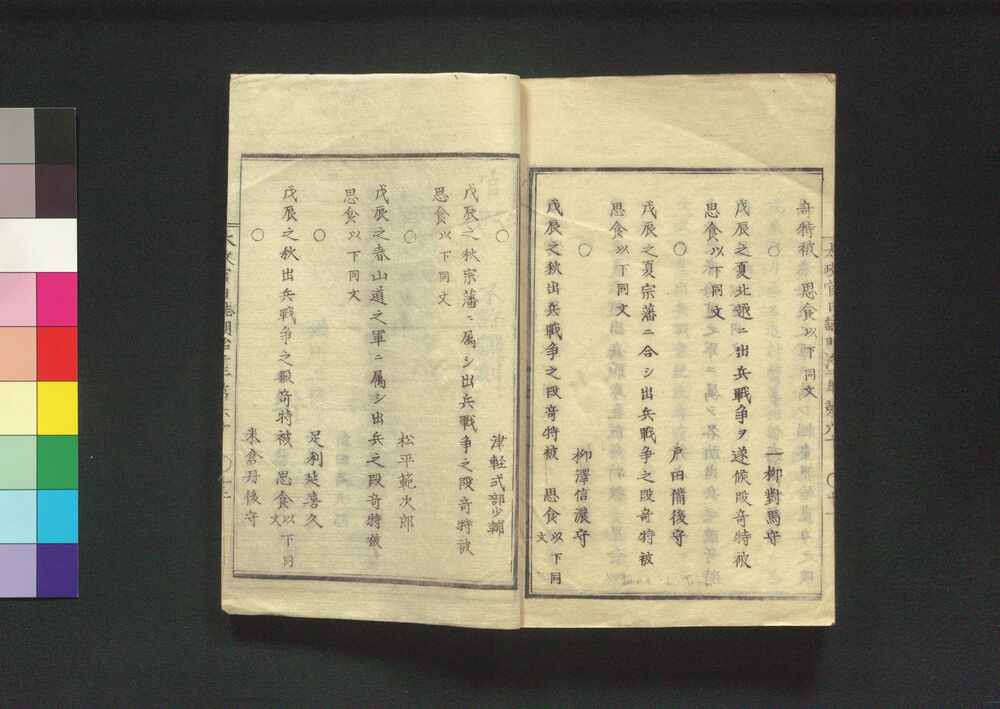 奇特被　思食以下同文
○　一柳對馬守
戊辰之夏北越ニ出兵戰爭ヲ遂候段奇特被
思食以下同文
○　戸田備後守
戊辰之夏宗藩ニ合シ出兵戰爭之段奇特被
思食以下同文
○　柳澤信濃守
戊辰之秋出兵戰爭之段奇特被　思食以下同文
○　津軽式部少輔
戊辰之秋宗藩ニ属シ出兵戰爭之段奇特被
思食以下同文
○　松平範次郎
戊辰之春山道之軍ニ属シ出兵之段奇特被
思食以下同文
○　足利延喜久
戊辰之秋出兵戰爭之段奇特被　思食以下同文
○　米倉丹後守